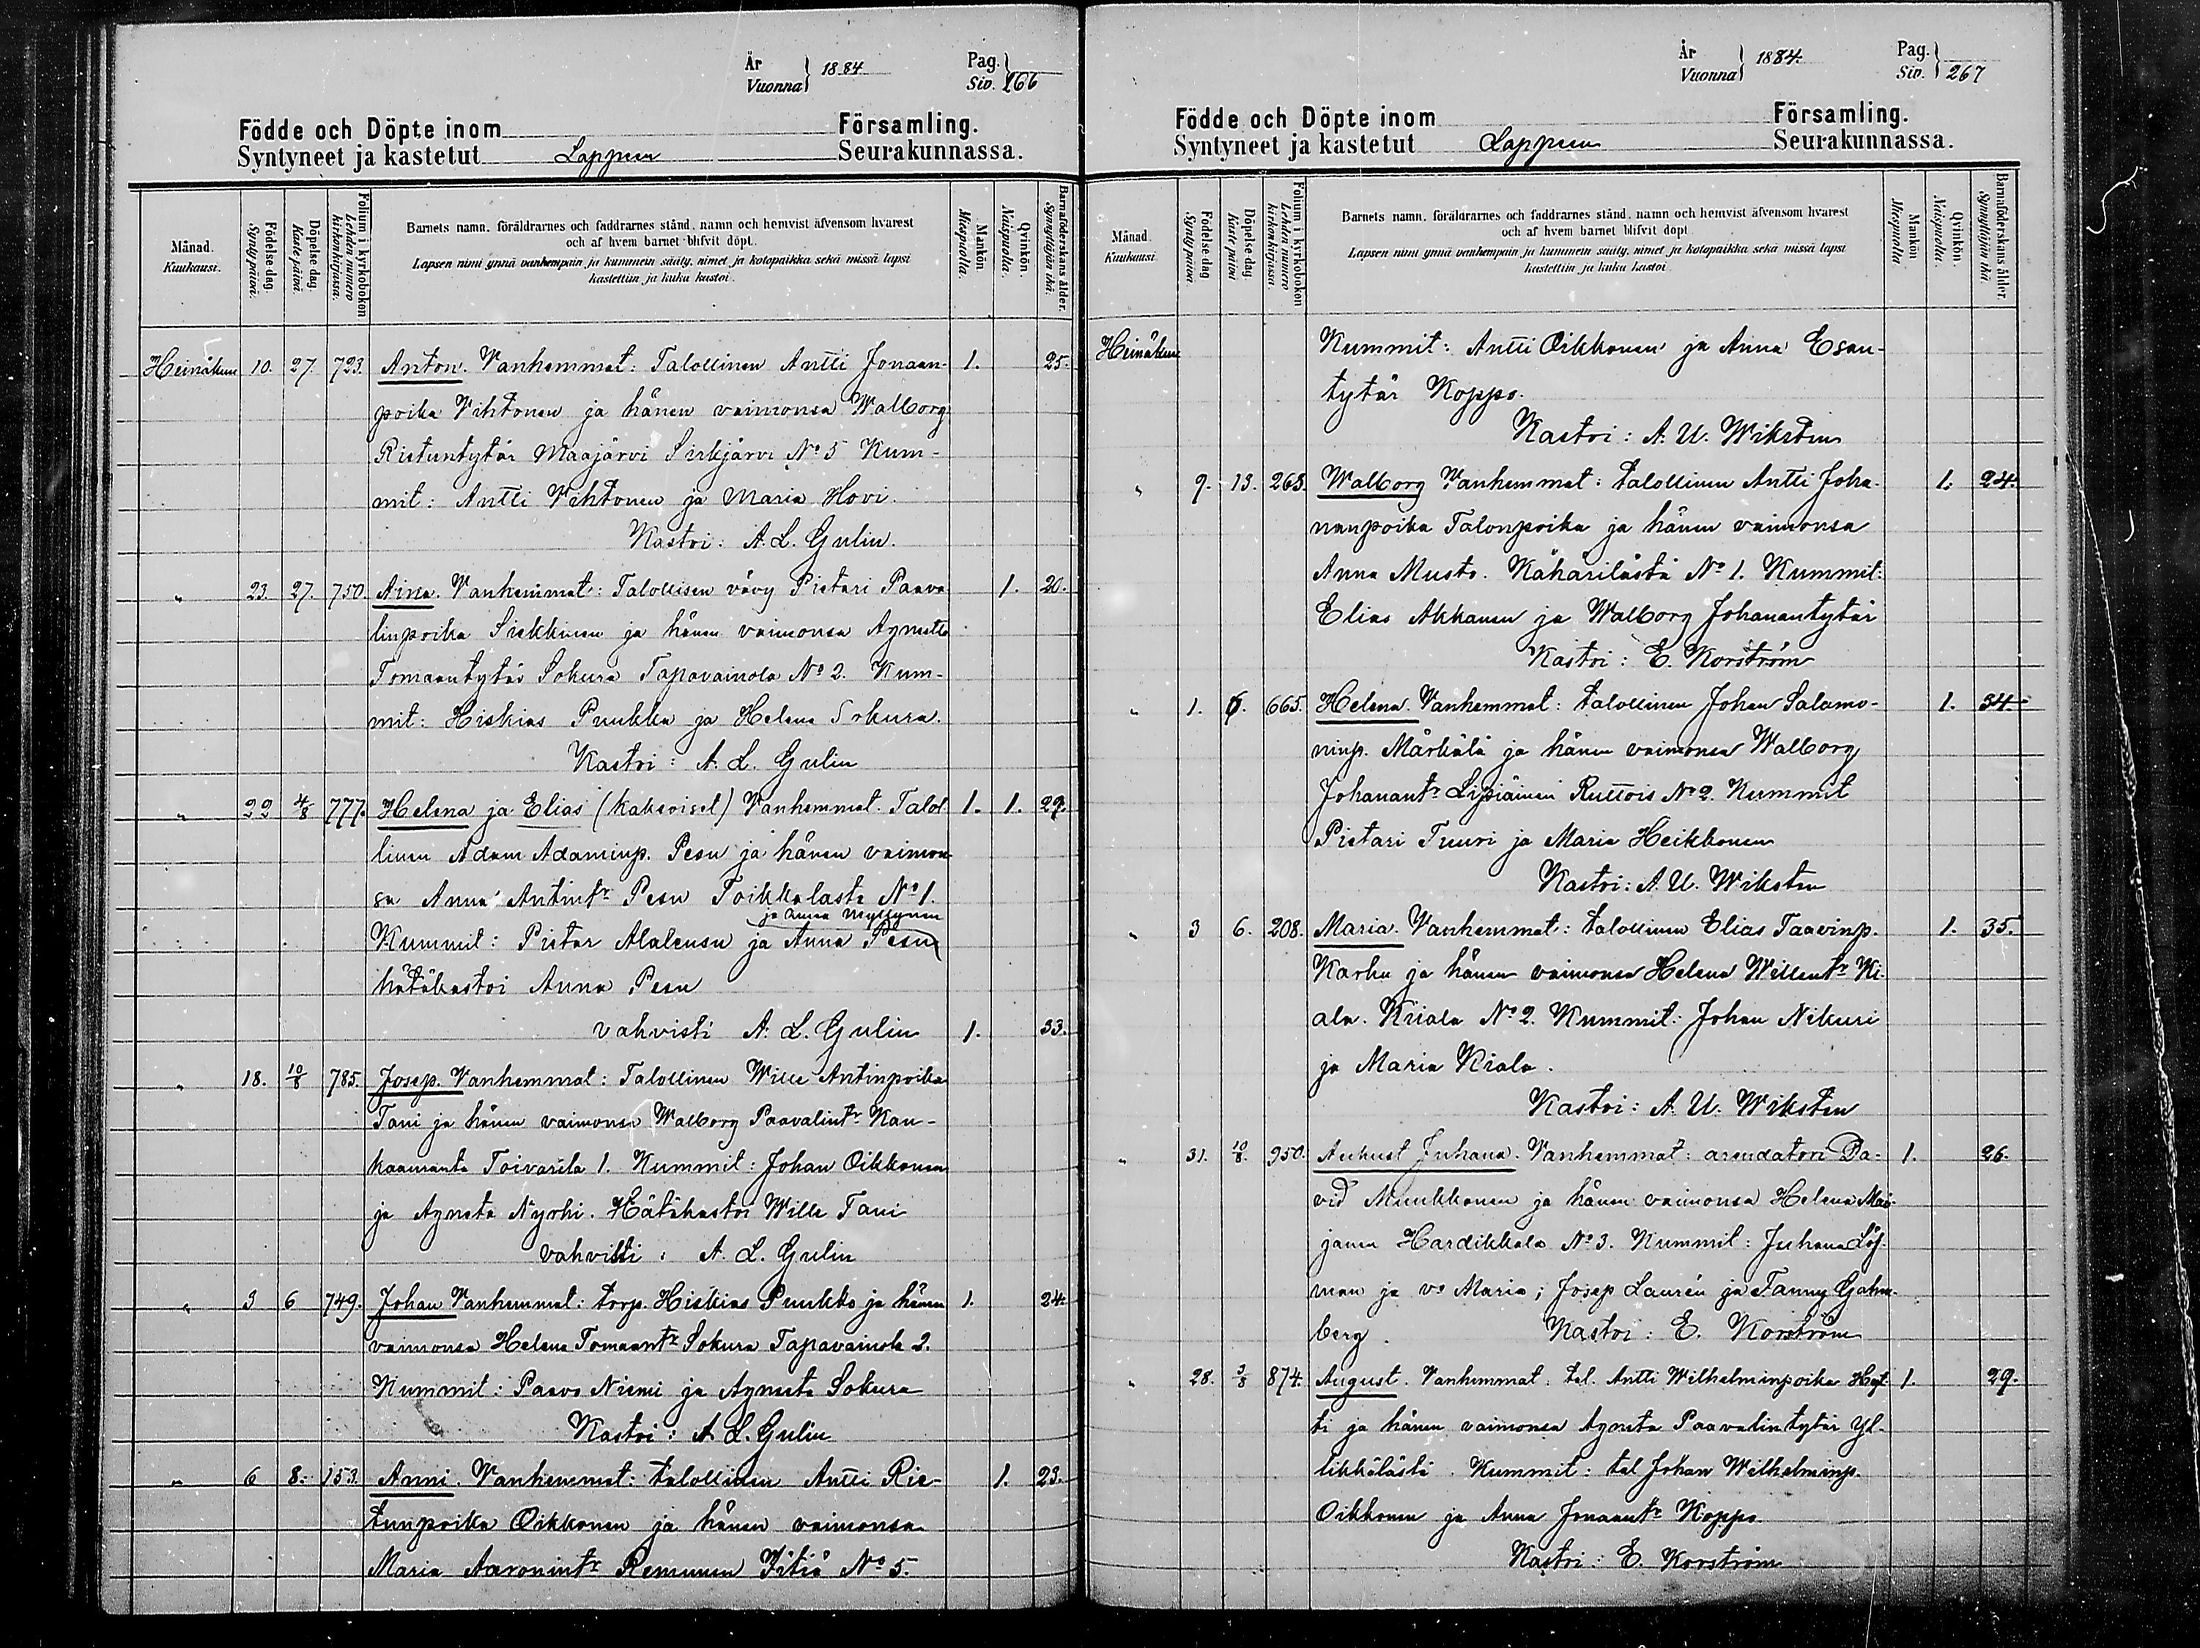 År
Vuonna } 1884
Pag.
Siv. } 166
Födde och Döpte inom Församling.
Syntyneet ja kastetut Lappeen Seurakunnassa.
Månad.
Kuukausi.
Födelse dag.
Synty päivä.
Döpelse dag.
Kaste päivä.
Folium i kyrkoboken
Lehden numero
kirkonkirjassa.
Barnets namn, föräldrarnes och faddrarnes stånd, namn och hemvist äfvensom hvarest
och af hvem barnet blifvit döpt.
Lapsen nimi ynnä vanhempain ja kummein sääty, nimet ja kotopaikka sekä missä lapsi
kastettiin ja kuka kastoi.
Mankön
Miespuolia.
Qvinkön.
Naispuolia.
Barnaföderskans ålder.
Synnyttäjän ikä.
Heinäkuu 10. 27. 723. Anton. Vanhemmat: Talollinen Antti Jonaan- 1. 25.
poika Vihtonen ja hänen vaimonsa Walborg
Ristuntytär Maajärvi Sirkjärvi No 5 Kum-
mit: Antti Vihtonen ja Maria Hovi.
Kastoi: A. L. Gulin.
" 23. 27. 750. Aina. Vanhemmat: Talollisen vävy Pietari Paava 1. 20.
linpoika Sirkkinen ja hänen vaimonsa Agneta
Tomaantytär Sokura Tapavainola No 2. Kum-
mit: Hiskias Puukka ja Helena Sokura.
Kastoi: A. L. Gulin
" 22 4/8 777. Helena ja Elias (kaksoiset) Vanhemmat. Talol 1. 1. 29.
linen Adam Adaminp. Pesu ja hänen vaimon
sa Anna Antintr Pesu Toikkalasta No 1.
ja Anna Myllynen
Kummit: Pietar Alalensu ja Anna Pesu
hätäkastoi Anna Pesu
vahvisti A. L. Gulin 1. 33.
" 18. 10/8 785. Josep. Vanhemmat: Talollinen Wille Antinpoika
Tani ja hänen vaimonsa Walborg Paavalintr Kau-
kaamanta Toivarila 1. Kummit: Johan Oikkonen
ja Agneta Nyrhi. Hätäkastoi Wille Tani
vahvisti: A. L. Gulin
" 3 6 749. Johan Vanhemmat: torp. Hiskias Puukka ja hänen 1. 24.
vaimonsa Helena Tomaantr Sokura Tapavainola 2.
Kummit: Paavo Niemi ja Agneta Sokura
Kastoi: A. L. Gulin
" 6 8. 153. Anni. Vanhemmat: talollinen Antti Ris- 1. 23.
tunpoika Oikkonen ja hänen vaimonsa
Maria Aaronintr Remunen Yitiä No 5.
År
Vuonna } 1884.
Pag.
Siv. } 267
Födde och Döpte inom Församling.
Syntyneet ja kastetut Lappeen Seurakunnassa.
Månad.
Kuukausi
Födelse dag.
Synty päivä.
Döpelse dag.
Kaste päivä.
Folium i kyrkoboken
Lehden numero
kirkonkirjassa.
Barnets namn, föräldrarnes och faddrarnes stånd, namn och hemvist äfvensom hvarest
och af hvem barnet blifvit döpt.
Lapsen nimi ynnä vanhempain ja kummein sääty, nimet ja kotopaikka sekä missä lapsi
kastettiin ja kuka kastoi.
Mankön
Miespuolia
Qvinkön.
Naispuolia.
Barnaföderskans ålder.
Synnyttäjän ikä.
Heinäkuu Kummit: Antti Oikkonen ja Anna Esan-
tytär Koppo.
Kastoi: A. U. Wiksten
" 9. 13. 263. Walborg Vanhemmat: talollinen Antti Joha- 1. 24.
nanpoika Talonpoika ja hänen vaimonsa
Anna Musto. Kähärilästä No 1. Kummit:
Elias Akkanen ja Walborg Johanantytär
Kastoi: E. Korström
" 1. 6. 665. Helena. Vanhemmat: talollinen Johan Salamo- 1. 34.
ninp. Märkälä ja hänen vaimonsa Walborg
Johanantr Lipiäinen Ruttois No 2. Kummit
Pietari Tuuri ja Maria Heikkonen
Kastoi: A. U. Wiksten
" 3 6. 208. Maria. Vanhemmat: talollinen Elias Taavinp. 1. 35.
Karhu ja hänen vaimonsa Helena Willentr Ki-
ala. Kiiala No 2. Kummit: Johan Nikuri
ja Maria Kiala.
Kastoi: A. U. Wiksten
" 31. 10/8. 950. Aukust Juhana. Vanhemmat: arendatori Da- 1. 26.
vid Muukkonen ja hänen vaimonsa Helena Mai-
janen Hardikkala No 3. Kummit: Juhana Löf-
man ja vo Maria; Josep Laurén ja Fanny Gahm-
berg. Kastoi: E. Korström
" 28. 3/8 874. August. Vanhemmat: tal. Antti Wilhelminpoika Hat- 1. 29.
ti ja hänen vaimonsa Agneta Paavalintytär Yl-
likkälästä. Kummit: tal Johan Wilhelminp.
Oikkonen ja Anna Jonaantr Koppo.
Kastoi: E. Korström